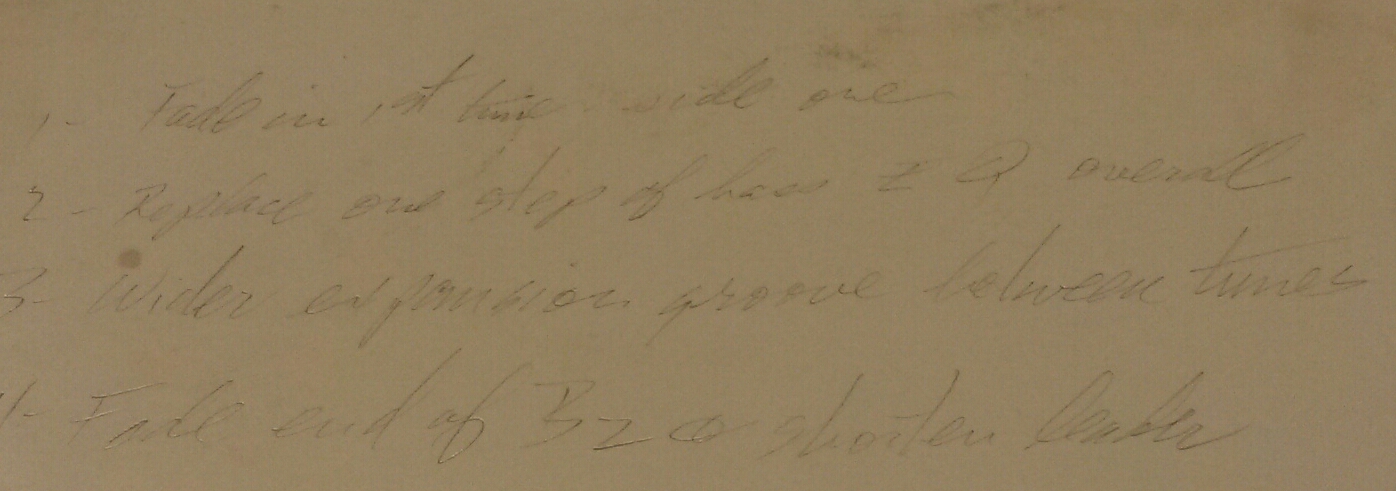 1- Fade in 1st tune side one
2- Replace one step of bass EQ overall
3- Wider expansion groove between tunes
4- Fade end of B2 shorten leader